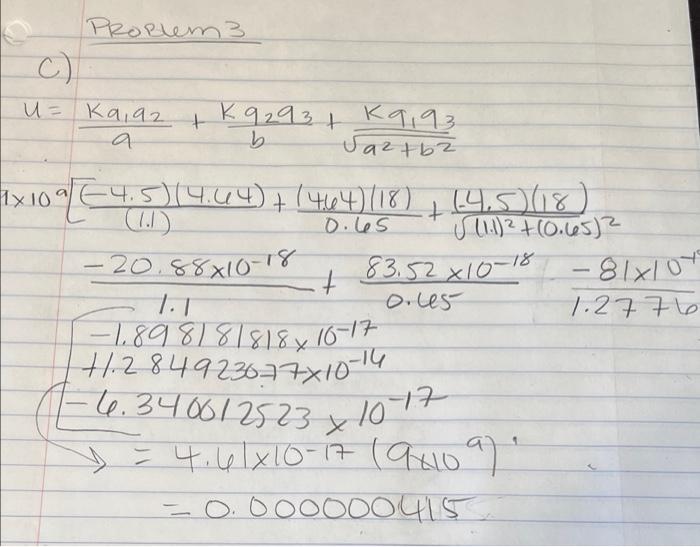 Problem 3
C)
U = Kq1q2/a + Kq2q3/b + Kq1q3/√a²+b²
9x10⁹[(-4.5)(4.64)/(1.1) + (4.64)(18)/0.65 + (-4.5)(18)/√(1.1)²+(0.65)²
-20.88x10-18/1.1 + 83.52x10-18/0.65 -81x10-1/1.2776
-1.898181818x10-17
+1.284923077x10-16
-6.340012523x10-17
= 4.61x10-17 (9x10⁹)
= 0.000000415